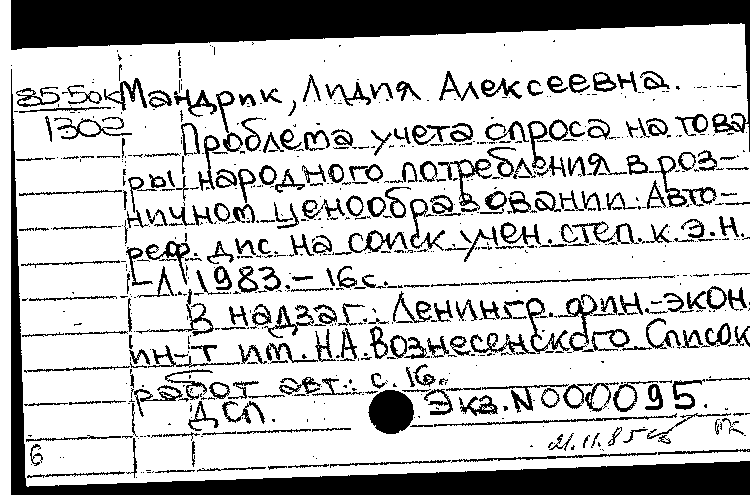 85-5ок Мандрик, Лидия Алексеевна.
1302 Проблема учета спроса на това
ры народного потребления в роз-
ничном ценообразовании: Авто-
реф. дис. на соиск. учен. степ. к.э.н.
-Л. 1983.-16с.
В надзаг.: Ленингр. фин.-экон.
ин-т им. Н.А.Вознесенского. Список
работ авт.: с.16.
ДСП. Экз.N000095.
21.11.85
6